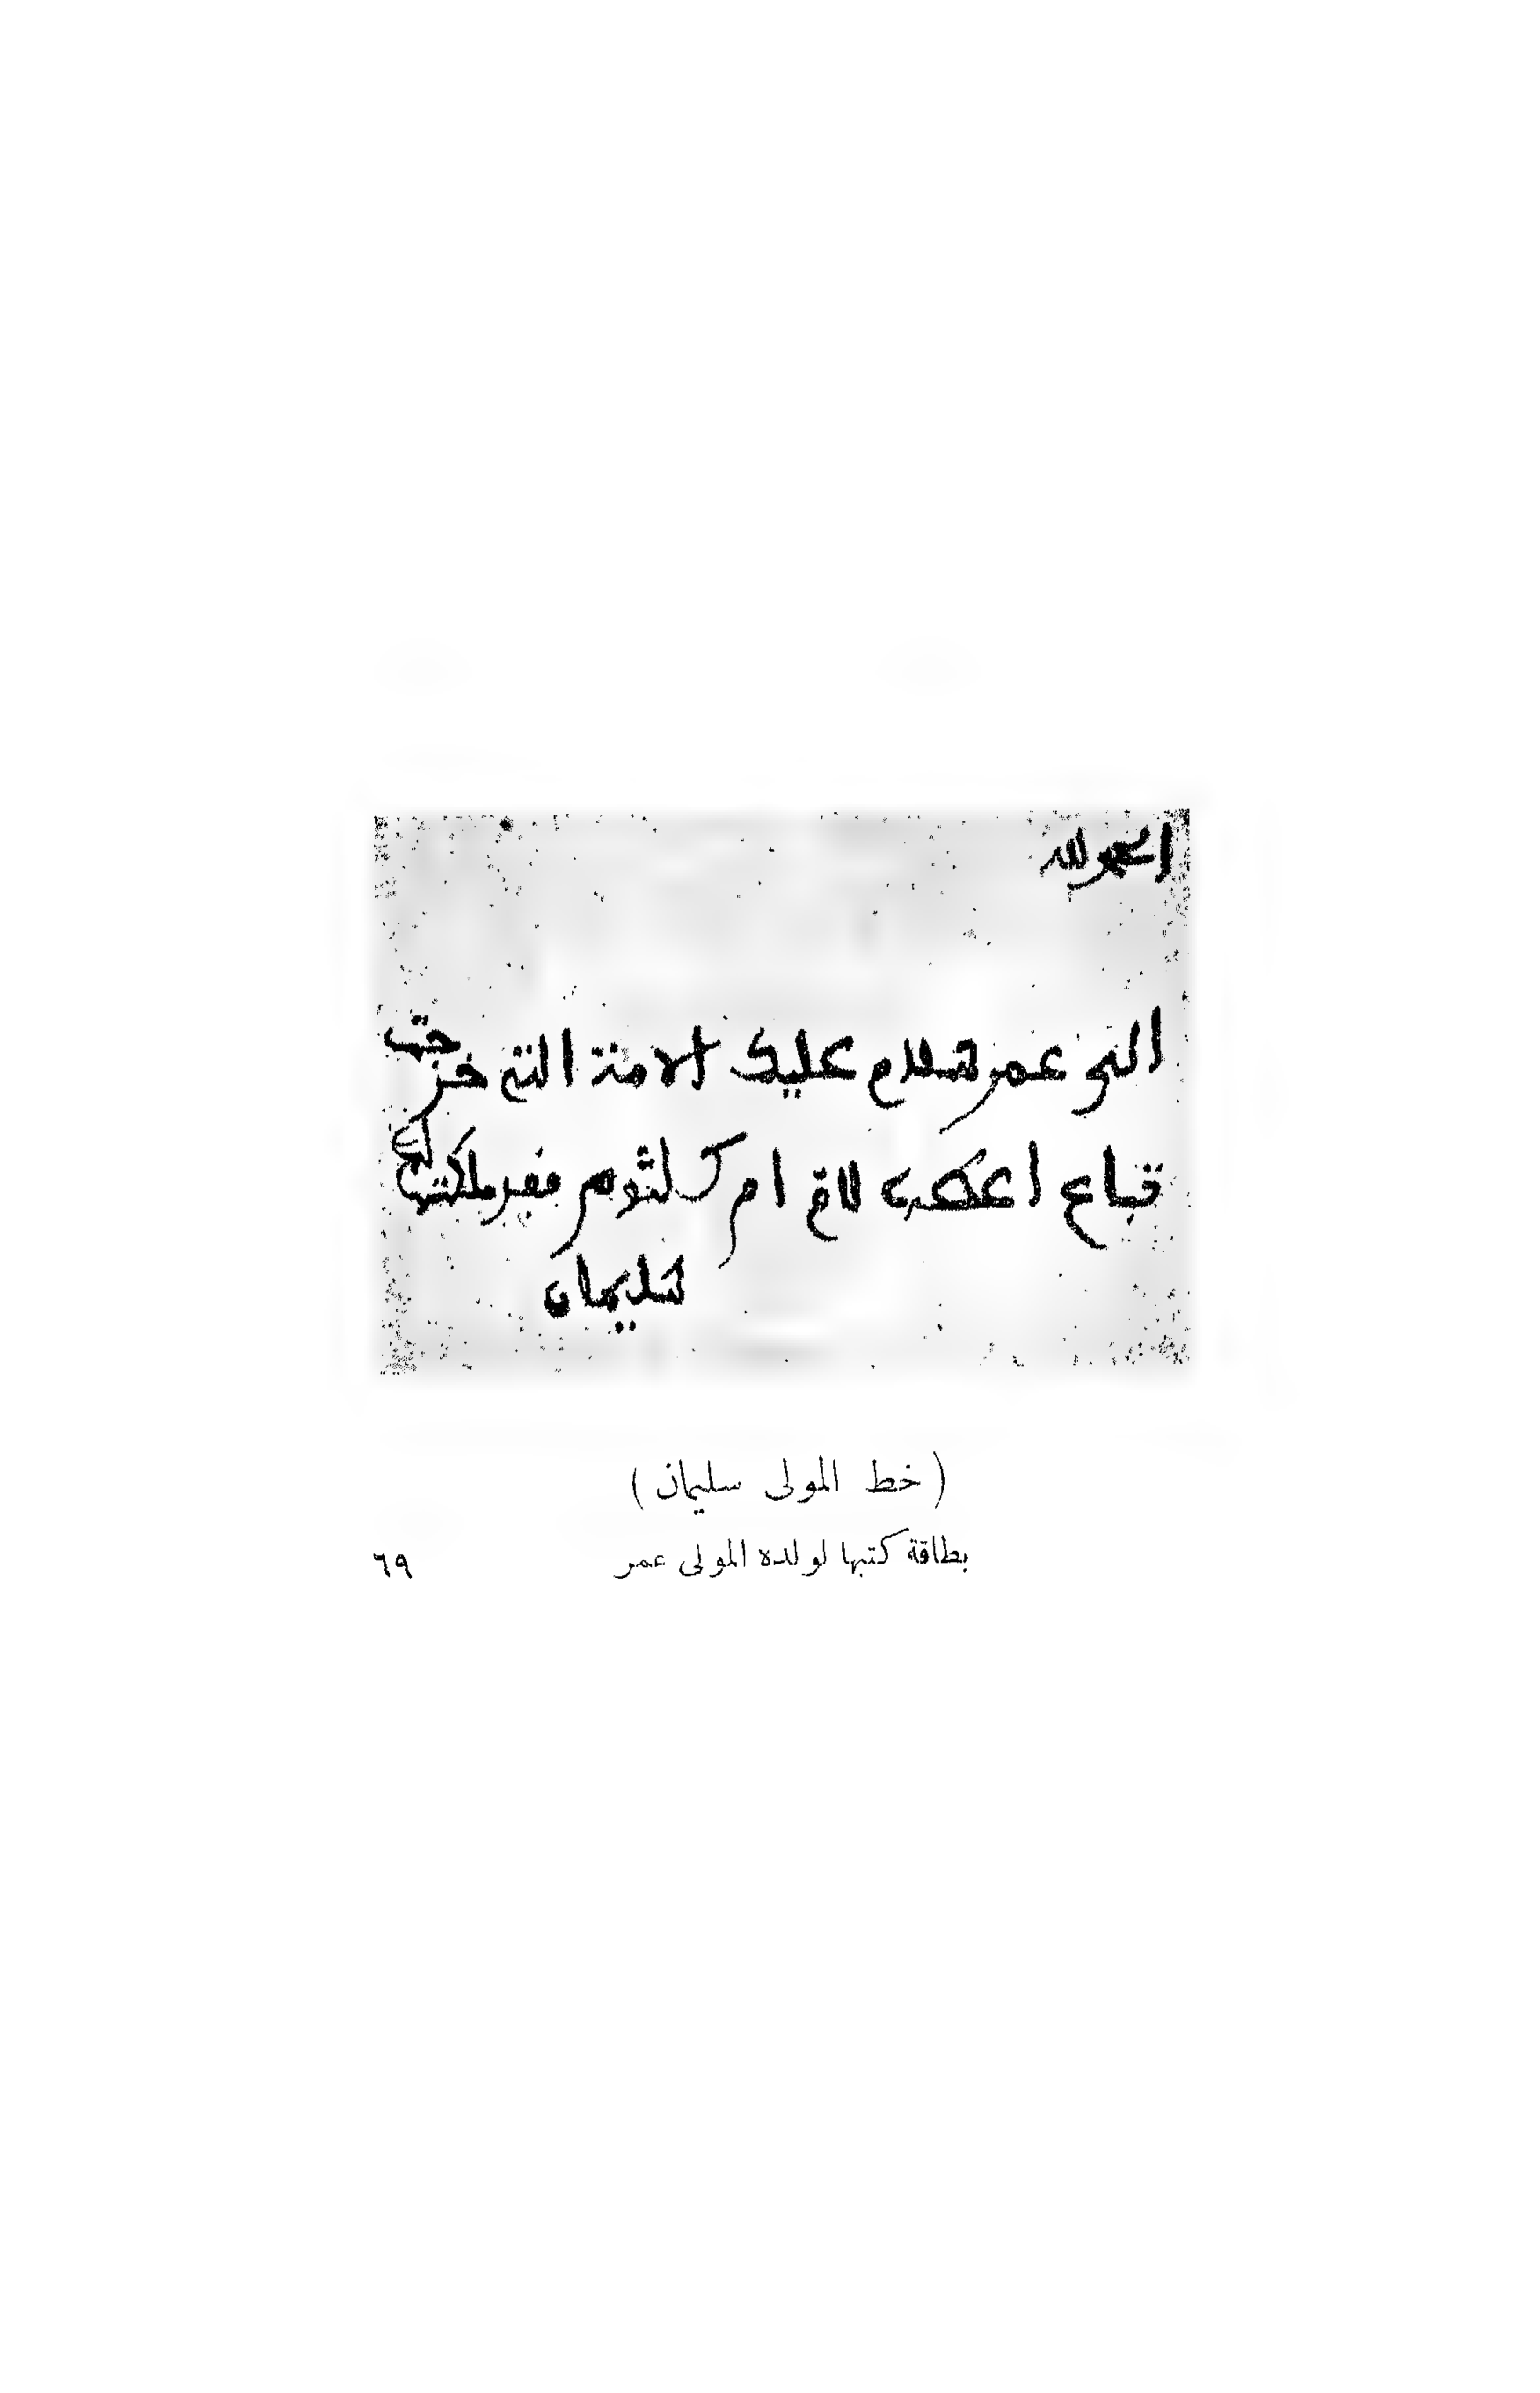 الحمد لله
ابني عمر سلام عليك الامة التي خرجت
تباع اعطت لام ام كلثوم فقد ملكتها لها
سليمان
( خط المولى سليمان )
بطاقة كتبها لولده المولى عمر
٦٩